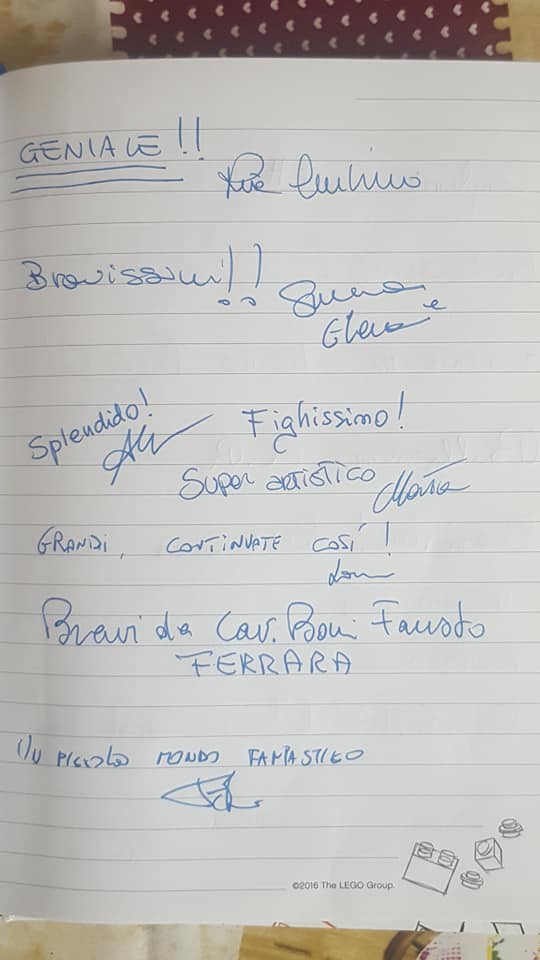 GENIALE!!
Bravissimi!!
e
Elena
Splendido!
Fighissimo!
Super artistico Maria
GRANDI, CONTINUATE COSÍ!
Bravi da Cav. Boni Fausto
FERRARA
UN PICCOLO MONDO FANTASTICO
©2016 The LEGO Group.